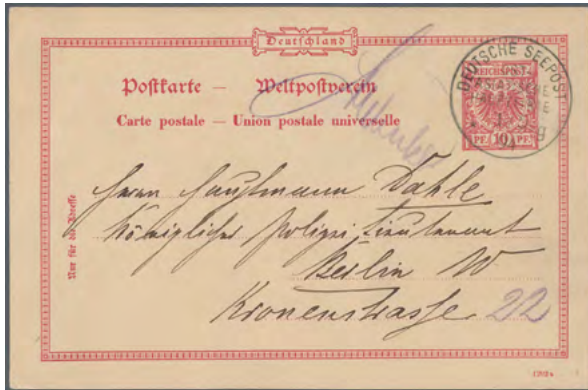 Deutschland
Postkarte — Weltpostverein
Carte postale — Union postale universelle
DEUTSCHE SEEPOST
REICHSPOST
PF. 10 PF.
Nur für die Adresse
Herrn Hauptmann Dahle
Königlicher Polizei Lieutenant
Berlin W
Kronenstrasse 22